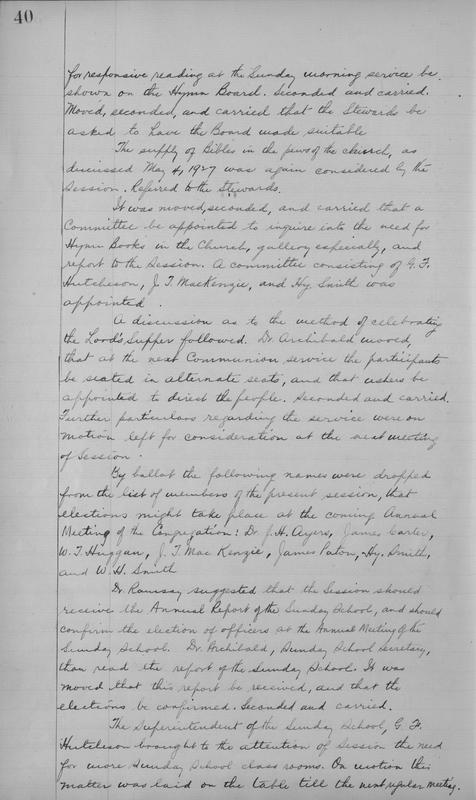 40
for responsive reading at the Sunday morning service be
shown on the Hymn Board. Seconded and carried.
Moved, seconded, and carried that the Stewards be
asked to have the Board made suitable
The supply of Bibles in the pews of the church, as
discussed May 4, 1927 was again considered by the
Session. Referred to the Stewards.
It was moved, seconded, and carried that a
Committee be appointed to inquire into the need for
Hymn Books in the Church, gallery especially, and
report to the Session. A committee consisting of G. F.
Hutcheson, J. T. MacKenzie, and Hy. Smith was
appointed.
A discussion as to the method of celebrating
the Lord's Supper followed. Dr. Archibald moved,
that at the next Communion service the participants
be seated in alternate seats, and that ushers be
appointed to direct the people. Seconded and carried.
Further particulars regarding the service were on
motion left for consideration at the next meeting
of Session.
By ballot the following names were dropped
from the list of members of the present session, that
elections might take place at the coming Annual
Meeting of the Congregation: Dr. J. H. Ayers, James Carter,
W. T. Huggan, J. T. MacKenzie, James Paton, Hy. Smith,
and W. H. Smith
Dr. Ramsay suggested that the Session should
receive the Annual Report of the Sunday School, and should
confirm the election of officers at the Annual Meeting of the
Sunday School. Dr. Archibald, Sunday School Secretary,
than read the report of the Sunday School. It was
moved that this report be received, and that the
elections be confirmed. Seconded and carried.
The Superintendent of the Sunday School, G. F.
Hutcheson brought to the attention of Session the need
for more Sunday School class rooms. On motion this
matter was laid on the table till the next regular meeting.